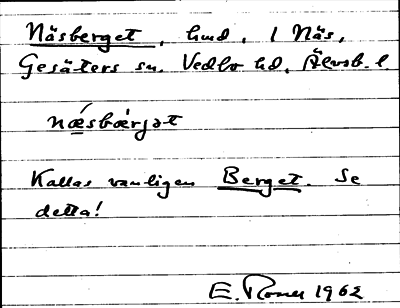 Näsberget, hmd, 1 Näs,
Gesäters sn. Vedbo hd, Älvsb. l
næ´sbær̀jət
Kallas vanligen Berget. Se
detta!
E. Rosén 1962